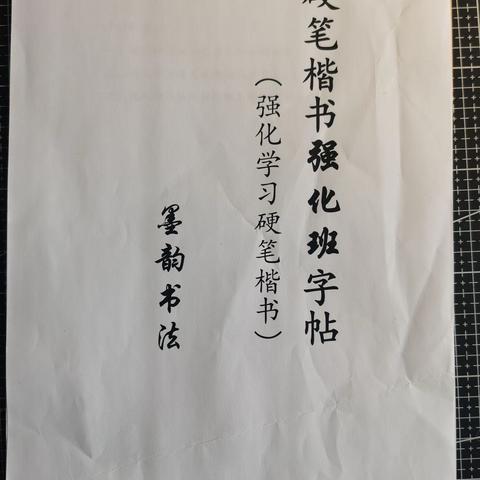 硬笔楷书强化班字帖
（强化学习硬笔楷书）
墨韵书法